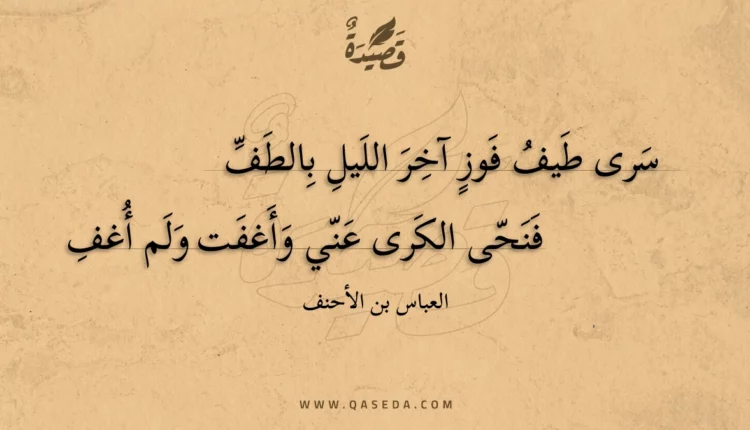 قَصِيْدَةٌ
سَرى طَيفُ فَوزٍ آخِرَ اللَيلِ بِالطَفِّ
فَنَحّى الكَرى عَنّي وَأَغفَت وَلَم أُغفِ
العباس بن الأحنف
WWW.QASEDA.COM